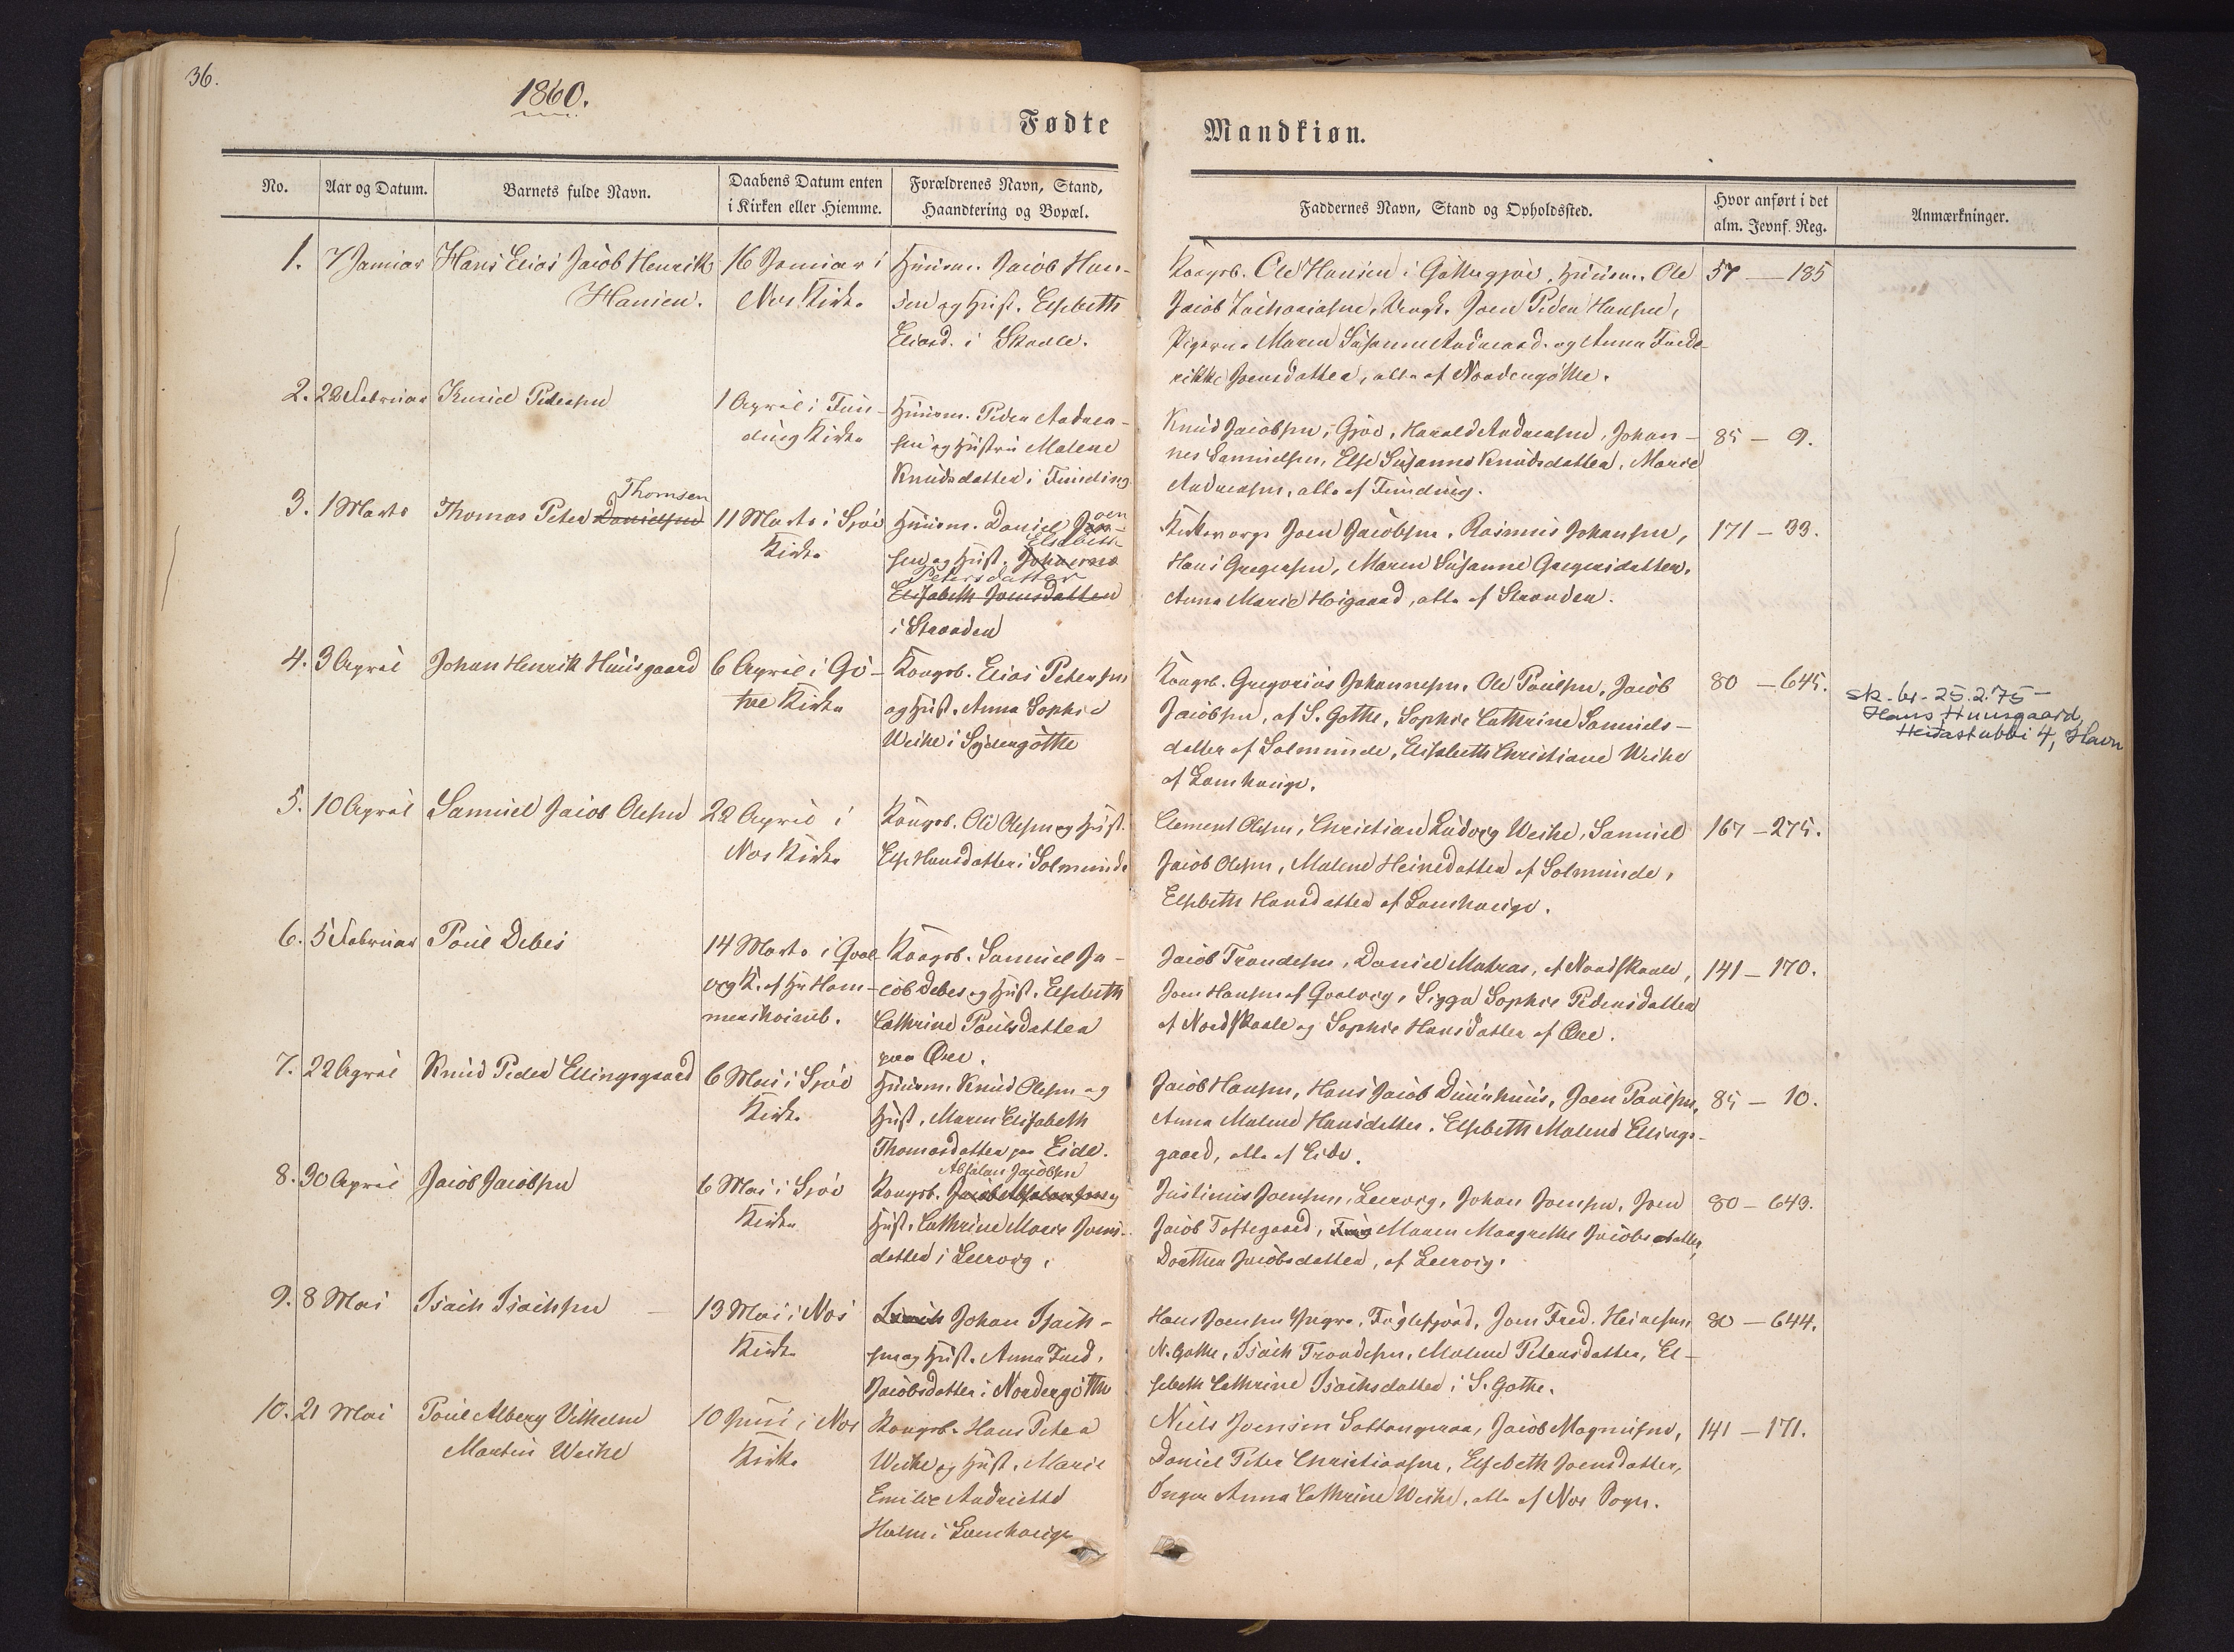 36.
1860.
Fødte
Mandkiøn.
No.
Aar og Datum.
Barnets fulde Navn.
Daabens Datum enten
i Kirken eller Hiemme.
Forældrenes Navn, Stand,
Haandtering og Bopæl.
Faddernes Navn, Stand og Opholdssted.
Hvor anført i det
alm. Jevnf. Reg.
Anmærkninger.
1. 7 Januar Hans Elias Jacob Henrik
Hansen.
16 Januar i
Nes Kirke
Huusm. Jacob Han-
sen og Hust. Elsebeth
Eliasd. i Skaale.
Kongsb. Ole Hansen i Gøttegjov, Huusm. Ole
Jacob Zachariasen, Joen Peder Hansen,
Pigerne Maren Susanne Andreasd. og Anna Frede-
rikke Joensdatter, alle af Nordengøtte.
57 — 185
2. 22 Februar Knud Pedersen
1 April i Fun-
ding Kirke
Huusm. Peder Andrea-
sen og Hustru Malene
Knudsdatter i Funding
Knud Jacobsen, Gjov, Harald Andreasen, Johan-
nes Samuelsen, Else Susanne Knudsdatter, Marie
Andreasen, alle af Funding.
85 — 9.
3. 1 Marts Thomas Peter Danielsen
Thomsen
11 Marts i Gjov
Kirke
Huusm. Daniel Joen-
sen og Hust. Johanne
Elsebeth
Petersdatter
Elisabeth Joensdatter
i Stranden
Kirkeværge Joen Jacobsen, Rasmus Johansen,
Hans Gregersen, Maren Susanne Gregersdatter,
Anna Marie Høigaard, alle af Stranden.
171 — 33.
4. 3 April Johan Henrik Huusgaard
6 April i Gø-
tue Kirke
Kongsb. Elias Petersen
og Hust. Anna Sophie
Weihe i Sydengøtte
Kongsb. Gregorius Johannesen, Ole Poulsen, Jacob
Jacobsen, af S. Gøthe, Sophie Cathrine Samuels-
datter af Solmunde, Elisabeth Christiane Weihe
af Lamhauge.
80 — 645.
sk. br. 25.2.75 —
Hans Huusgaard,
Heiðastubbi 4, Havn
5. 10 April Samuel Jacob Olesen
22 April i
Nes Kirke
Kongsb. Ole Olesen og Hust.
Else Hansdatter i Solmunde
Clement Olesen, Christian Ludvig Weihe, Samuel
Jacob Olesen, Malene Heinedatter af Solmunde,
Elsebeth Hansdatter af Lamhauge.
167 — 275.
6. 5 Februar Poul Debes
14 Marts i Qval-
vig K. af Hr Ham-
mershaimb.
Kongsb. Samuel Ja-
cob Debes og Hust. Elsebeth
Cathrine Poulsdatter
paa Ore.
Jacob Trondesen, Daniel Matras, af Nordskaale,
Joen Hansen af Qvalvig, Sigga Sophie Pedersdatter
af Nordskaale og Sophie Hansdatter af Ore.
141 — 170.
7. 22 April Knud Peder Ellingsgaard
6 Mai i Gjov
Kirke
Huusm. Knud Olesen og
Hust. Maren Elisabeth
Thomasdatter paa Eide.
Jacob Hansen, Hans Jacob Duurhuus, Joen Poulsen,
Anna Malene Hansdatter, Elsebeth Malene Ellings-
gaard, alle af Eide.
85 — 10.
8. 30 April Jacob Jacobsen
6 Mai i Gjov
Kirke
Absalon Jacobsen
Kongsb. Jacob Absalonsen og
Hust. Cathrine Marie Joens-
datter i Leervig.
Justinus Joensen, Leervig, Johan Joensen, Joen
Jacob Toftegaard, Maren Margrethe Jacobsdatter,
Dorthea Jacobsdatter, af Leervig.
80 — 643.
9. 8 Mai Isach Isachsen —
13 Mai i Nes
Kirke
Isach Johan Isach-
sen og Hust. Anna Fred.
Jacobsdatter i Nordergøtte
Hans Joensen Yngre, Fuglefjord, Joen Fred. Heinesen
N. Gøthe, Isach Trondesen, Malene Petersdatter, El-
sebeth Cathrine Isachsdatter i S. Gøthe.
80 — 644.
10. 21 Mai Poul Alberg Vilhelm
Martin Weihe
10 Juni i Nes
Kirke
Kongsb. Hans Peter
Weihe og Hust. Marie
Emilie Andriette
Holm i Lamhauge
Niels Joensen Saltangeraa, Jacob Magnusen,
Daniel Peter Christiansen, Elsebeth Joensdatter,
Inger Anna Cathrine Weihe, alle af Nes Sogn.
141 — 171.